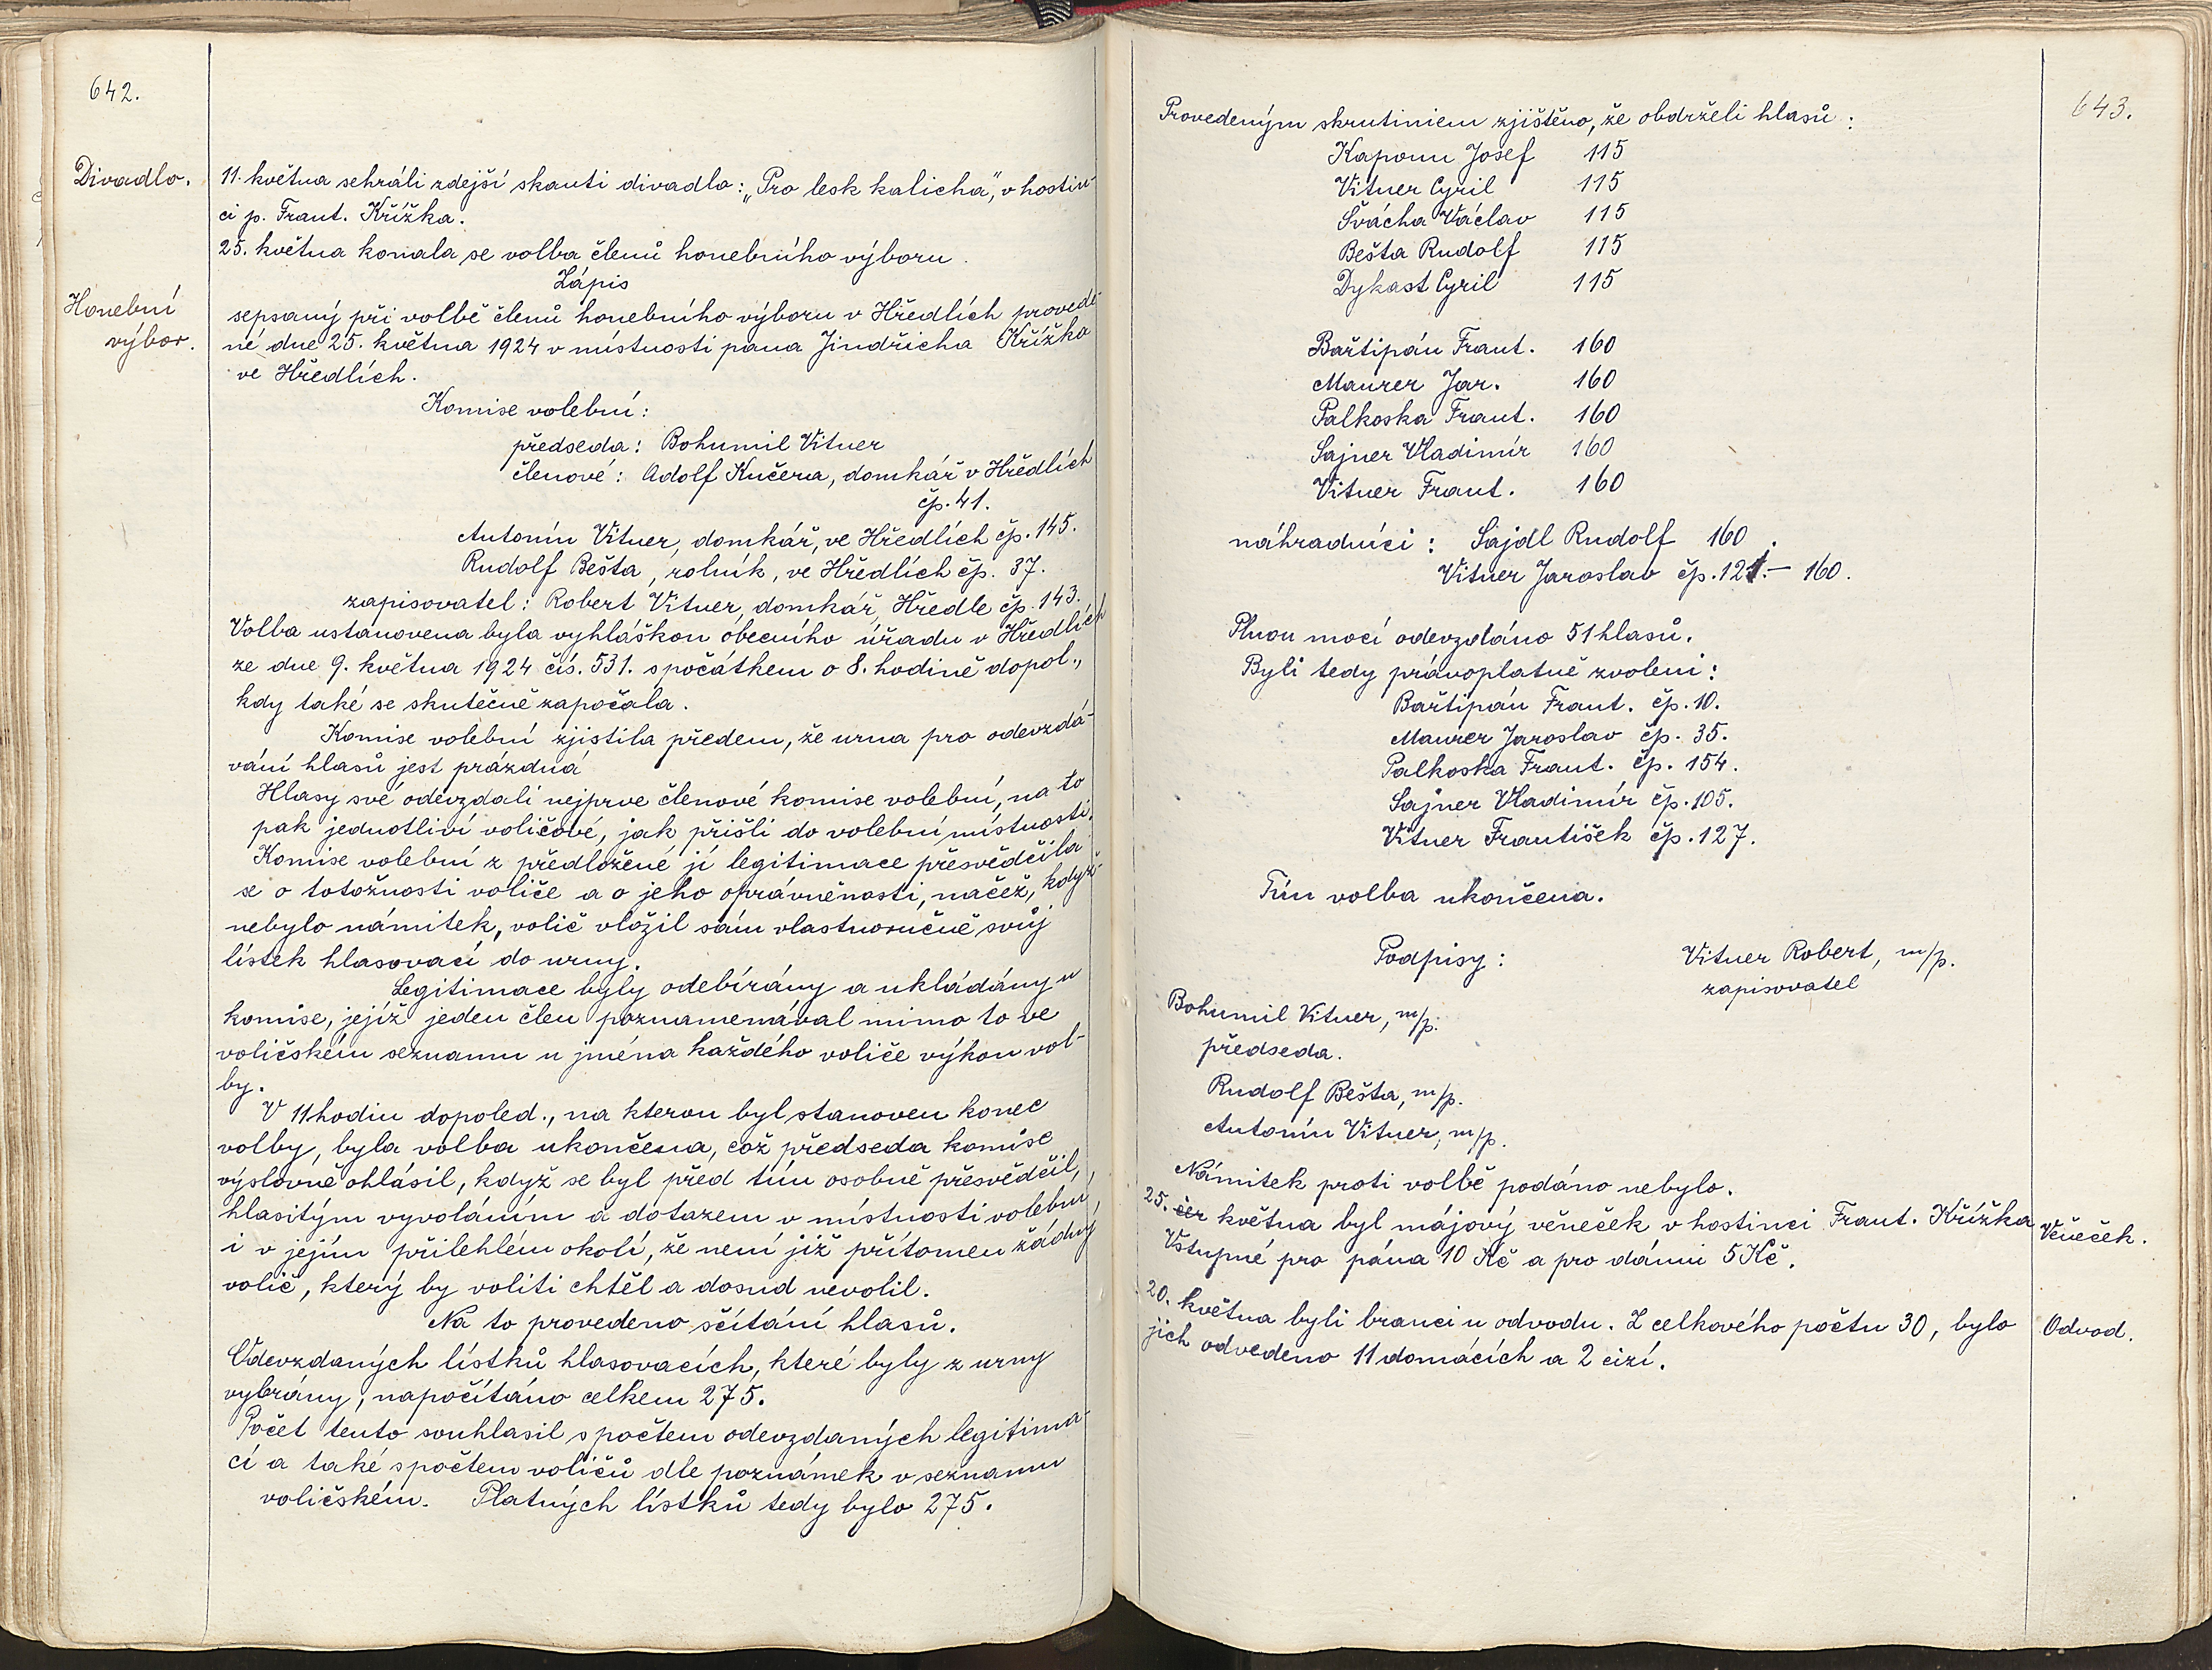 642.
Divadlo.
11. května sehráli zdejší skauti divadlo: „Pro lesk kalicha", v hostin-
ci p. Frant. Křížka.
25. května konala se volba členů honebního výboru.
Zápis
Honební
výbor.
sepsaný při volbě členů honebního výboru v Hředlích provede-
né dne 25. května 1924 v místnosti pana Jindřicha Křížka
ve Hředlích.
Komise volební:
předseda: Bohumil Vitner
členové: Adolf Kučera, domkář v Hředlích
čp. 41.
Antonín Vitner, domkář, ve Hředlích čp. 145.
Rudolf Bešta, rolník, ve Hředlích čp. 37.
zapisovatel: Robert Vitner, domkář, Hředle čp. 143.
Volba ustanovena byla vyhláškou obecního úřadu v Hředlích
ze dne 9. května 1924 čís. 531. s počátkem o 8. hodině dopol.,
kdy také se skutečně započala.
Komise volební zjistila předem, že urna pro odevzdá-
vání hlasů jest prázdná
Hlasy své odevzdali nejprve členové komise volební, na to
pak jednotliví voličové, jak přišli do volební místnosti.
Komise volební z předložené jí legitimace přesvědčila
se o totožnosti voliče a o jeho oprávněnosti, načež, když
nebylo námitek, volič vložil sám vlastnoručně svůj
lístek hlasovací do urny.
Legitimace byly odebírány a ukládány u
komise, jejíž jeden člen poznamenával mimo to ve
voličském seznamu u jména každého voliče výkon vol-
by.
V 11 hodin dopoled., na kterou byl stanoven konec
volby, byla volba ukončena, což předseda komise
výslovně ohlásil, když se byl před tím osobně přesvědčil,
hlasitým vyvoláním a dotazem v místnosti volební,
i v jejím přilehlém okolí, že není již přítomen žádný
volič, který by voliti chtěl a dosud nevolil.
Na to provedeno sčítání hlasů.
Odevzdaných lístků hlasovacích, které byly z urny
vybrány, napočítáno celkem 275.
Počet tento souhlasil s počtem odevzdaných legitima-
cí a také s počtem voličů dle poznámek v seznamu
voličském. Platných lístků tedy bylo 275.
643.
Provedeným skrutiniem zjištěno, že obdrželi hlasů:
Kaponn Josef 115
Vitner Cyril 115
Švácha Václav 115
Bešta Rudolf 115
Dykast Cyril 115
Bařtipán Frant. 160
Maurer Jar. 160
Palkoska Frant. 160
Sajner Vladimír 160
Vitner Frant. 160
náhradníci: Sajdl Rudolf 160.
Vitner Jaroslav čp. 121.- 160.
Plnou mocí odevzdáno 51 hlasů.
Byli tedy právoplatně zvoleni:
Bařtipán Frant. čp. 10.
Maurer Jaroslav čp. 35.
Palkoska Frant. čp. 154.
Sajner Vladimír čp. 105.
Vitner František čp. 127.
Tím volba ukončena.
Podpisy: Vitner Robert, m/p.
zapisovatel
Bohumil Vitner, m/p.
předseda.
Rudolf Bešta, m/p.
Antonín Vitner, m/p.
Námitek proti volbě podáno nebylo.
25. čer května byl májový věneček v hostinci Frant. Křížka
Věneček.
Vstupné pro pána 10 Kč a pro dámu 5 Kč.
20. května byli branci u odvodu. Z celkového počtu 30, bylo
Odvod.
jich odvedeno 11 domácích a 2 cizí.